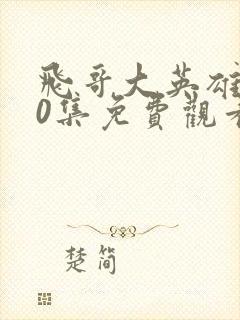 飛哥大英雄
0集免費觀看
楚简